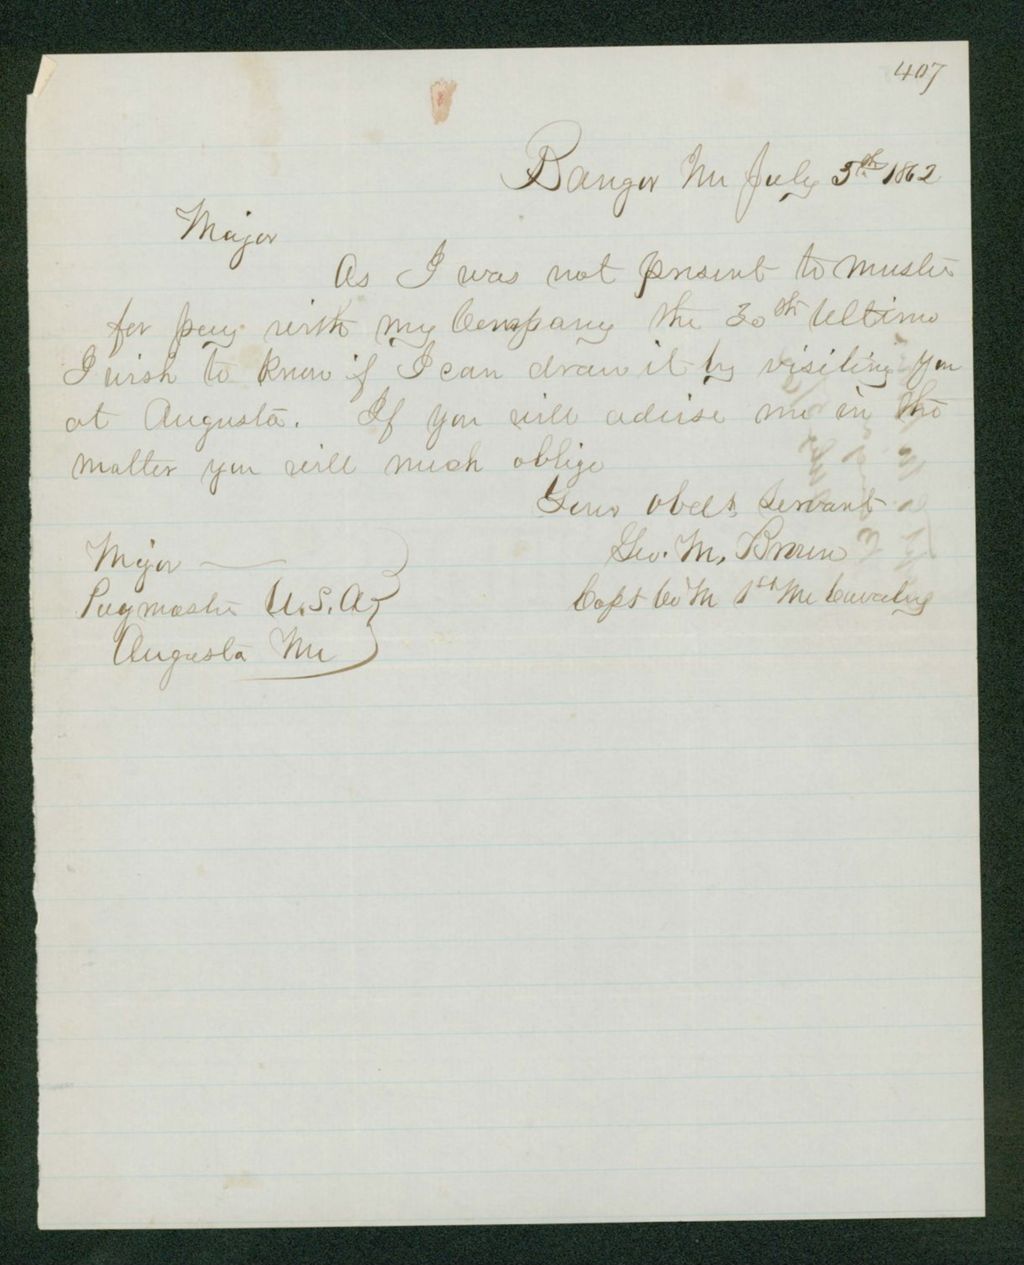 407
Bangor Me July 5th 1862
Major
As I was not present to muster
for pay with my Company the 30th Ultimo
I wish to know if I can draw it by visiting you
at Augusta. If you will advise me in the
matter you will much oblige
Your obdt servant
Geo. M. Brown
Capt Co M 1st Me Cavalry
Major
Paymaster U.S.A
Augusta Me